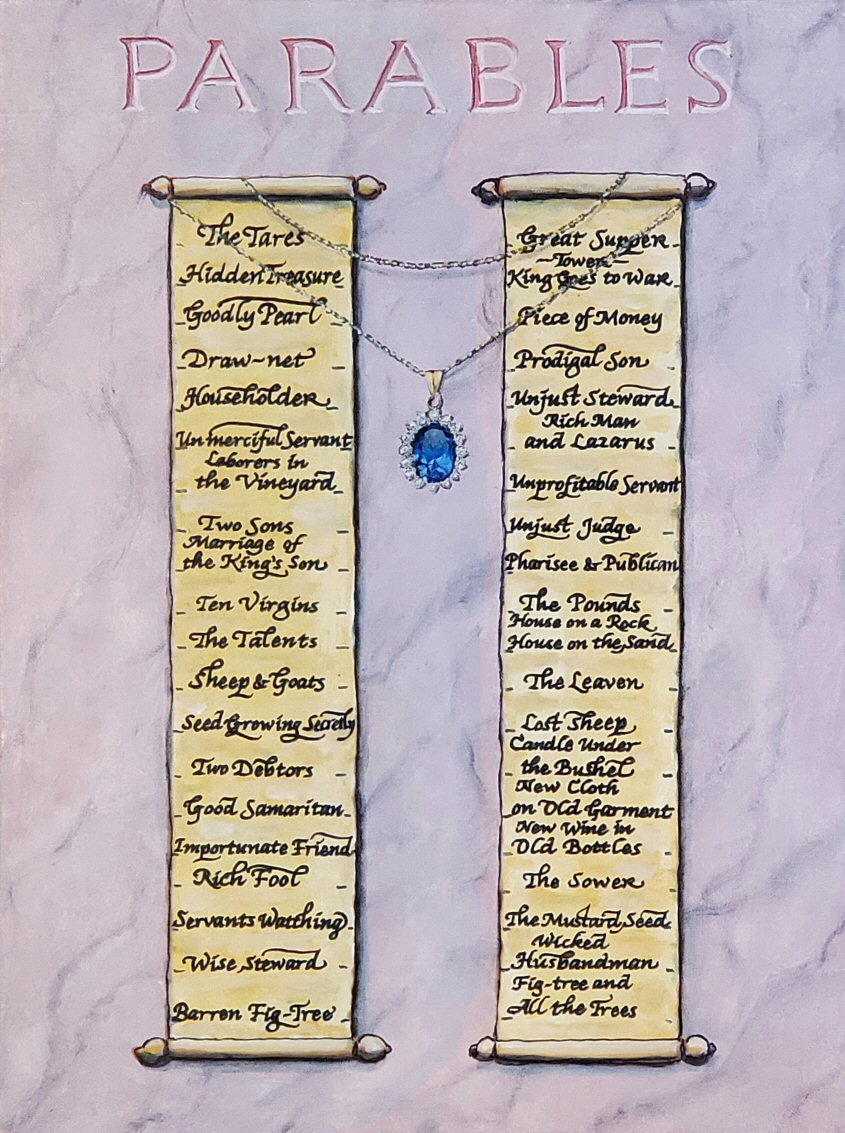 PARABLES
The Tares
Hidden Treasure
Goodly Pearl
Draw-net
Householder
Unmerciful Servant
Laborers in
the Vineyard
Two Sons
Marriage of
the King's Son
Ten Virgins
The Talents
Sheep & Goats
Seed Growing Secretly
Two Debtors
Good Samaritan
Importunate Friend
Rich Fool
Servants Watching
Wise Steward
Barren Fig-Tree
Great Supper
~Tower~
King Goes to War
Piece of Money
Prodigal Son
Unjust Steward
Rich Man
and Lazarus
Unprofitable Servant
Unjust Judge
Pharisee & Publican
The Pounds
House on a Rock
House on the Sand
The Leaven
Lost Sheep
Candle Under
the Bushel
New Cloth
on Old Garment
New Wine in
Old Bottles
The Sower
The Mustard Seed
Wicked
Husbandman
Fig-tree and
All the Trees